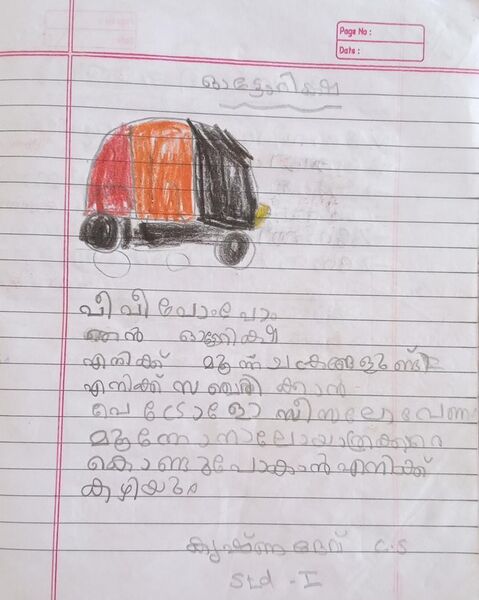 Page No :
Date :
ഓട്ടോറിക്ഷ
പീ പീ പോം പോം
ഞാൻ
എനിക്ക് മൂന്ന് ചക്രങ്ങളുണ്ട്
എനിക്ക് സഞ്ചരിക്കാൻ
പെട്രോളോ ഡീസലോ വേണം
മൂന്നോ നാലോ യാത്രക്കാരെ
കൊണ്ടുപോകാൻ എനിക്ക്
കഴിയും
കൃഷ്ണദേവ് C.S
Std - I